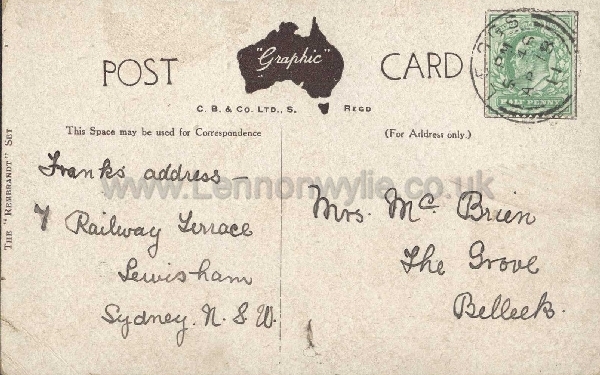 POST CARD
"Graphic"
C. B. & Co. LTD., S. REGD
This Space may be used for Correspondence
(For Address only.)
THE "REMBRANDT" SET
HALF PENNY
www.Lennonwylie.co.uk
Franks address -
7 Railway Terrace
Lewisham
Sydney. N. S. W.
Mrs. Mc Brien
The Grove
Belleek.